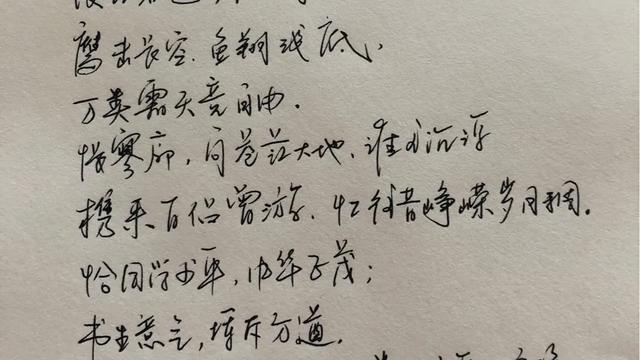 鹰击长空,鱼翔浅底,
万类霜天竞自由.
怅寥廓,问苍茫大地,谁主沉浮
携来百侣曾游,忆往昔峥嵘岁月稠.
恰同学少年,风华正茂;
书生意气,挥斥方遒.